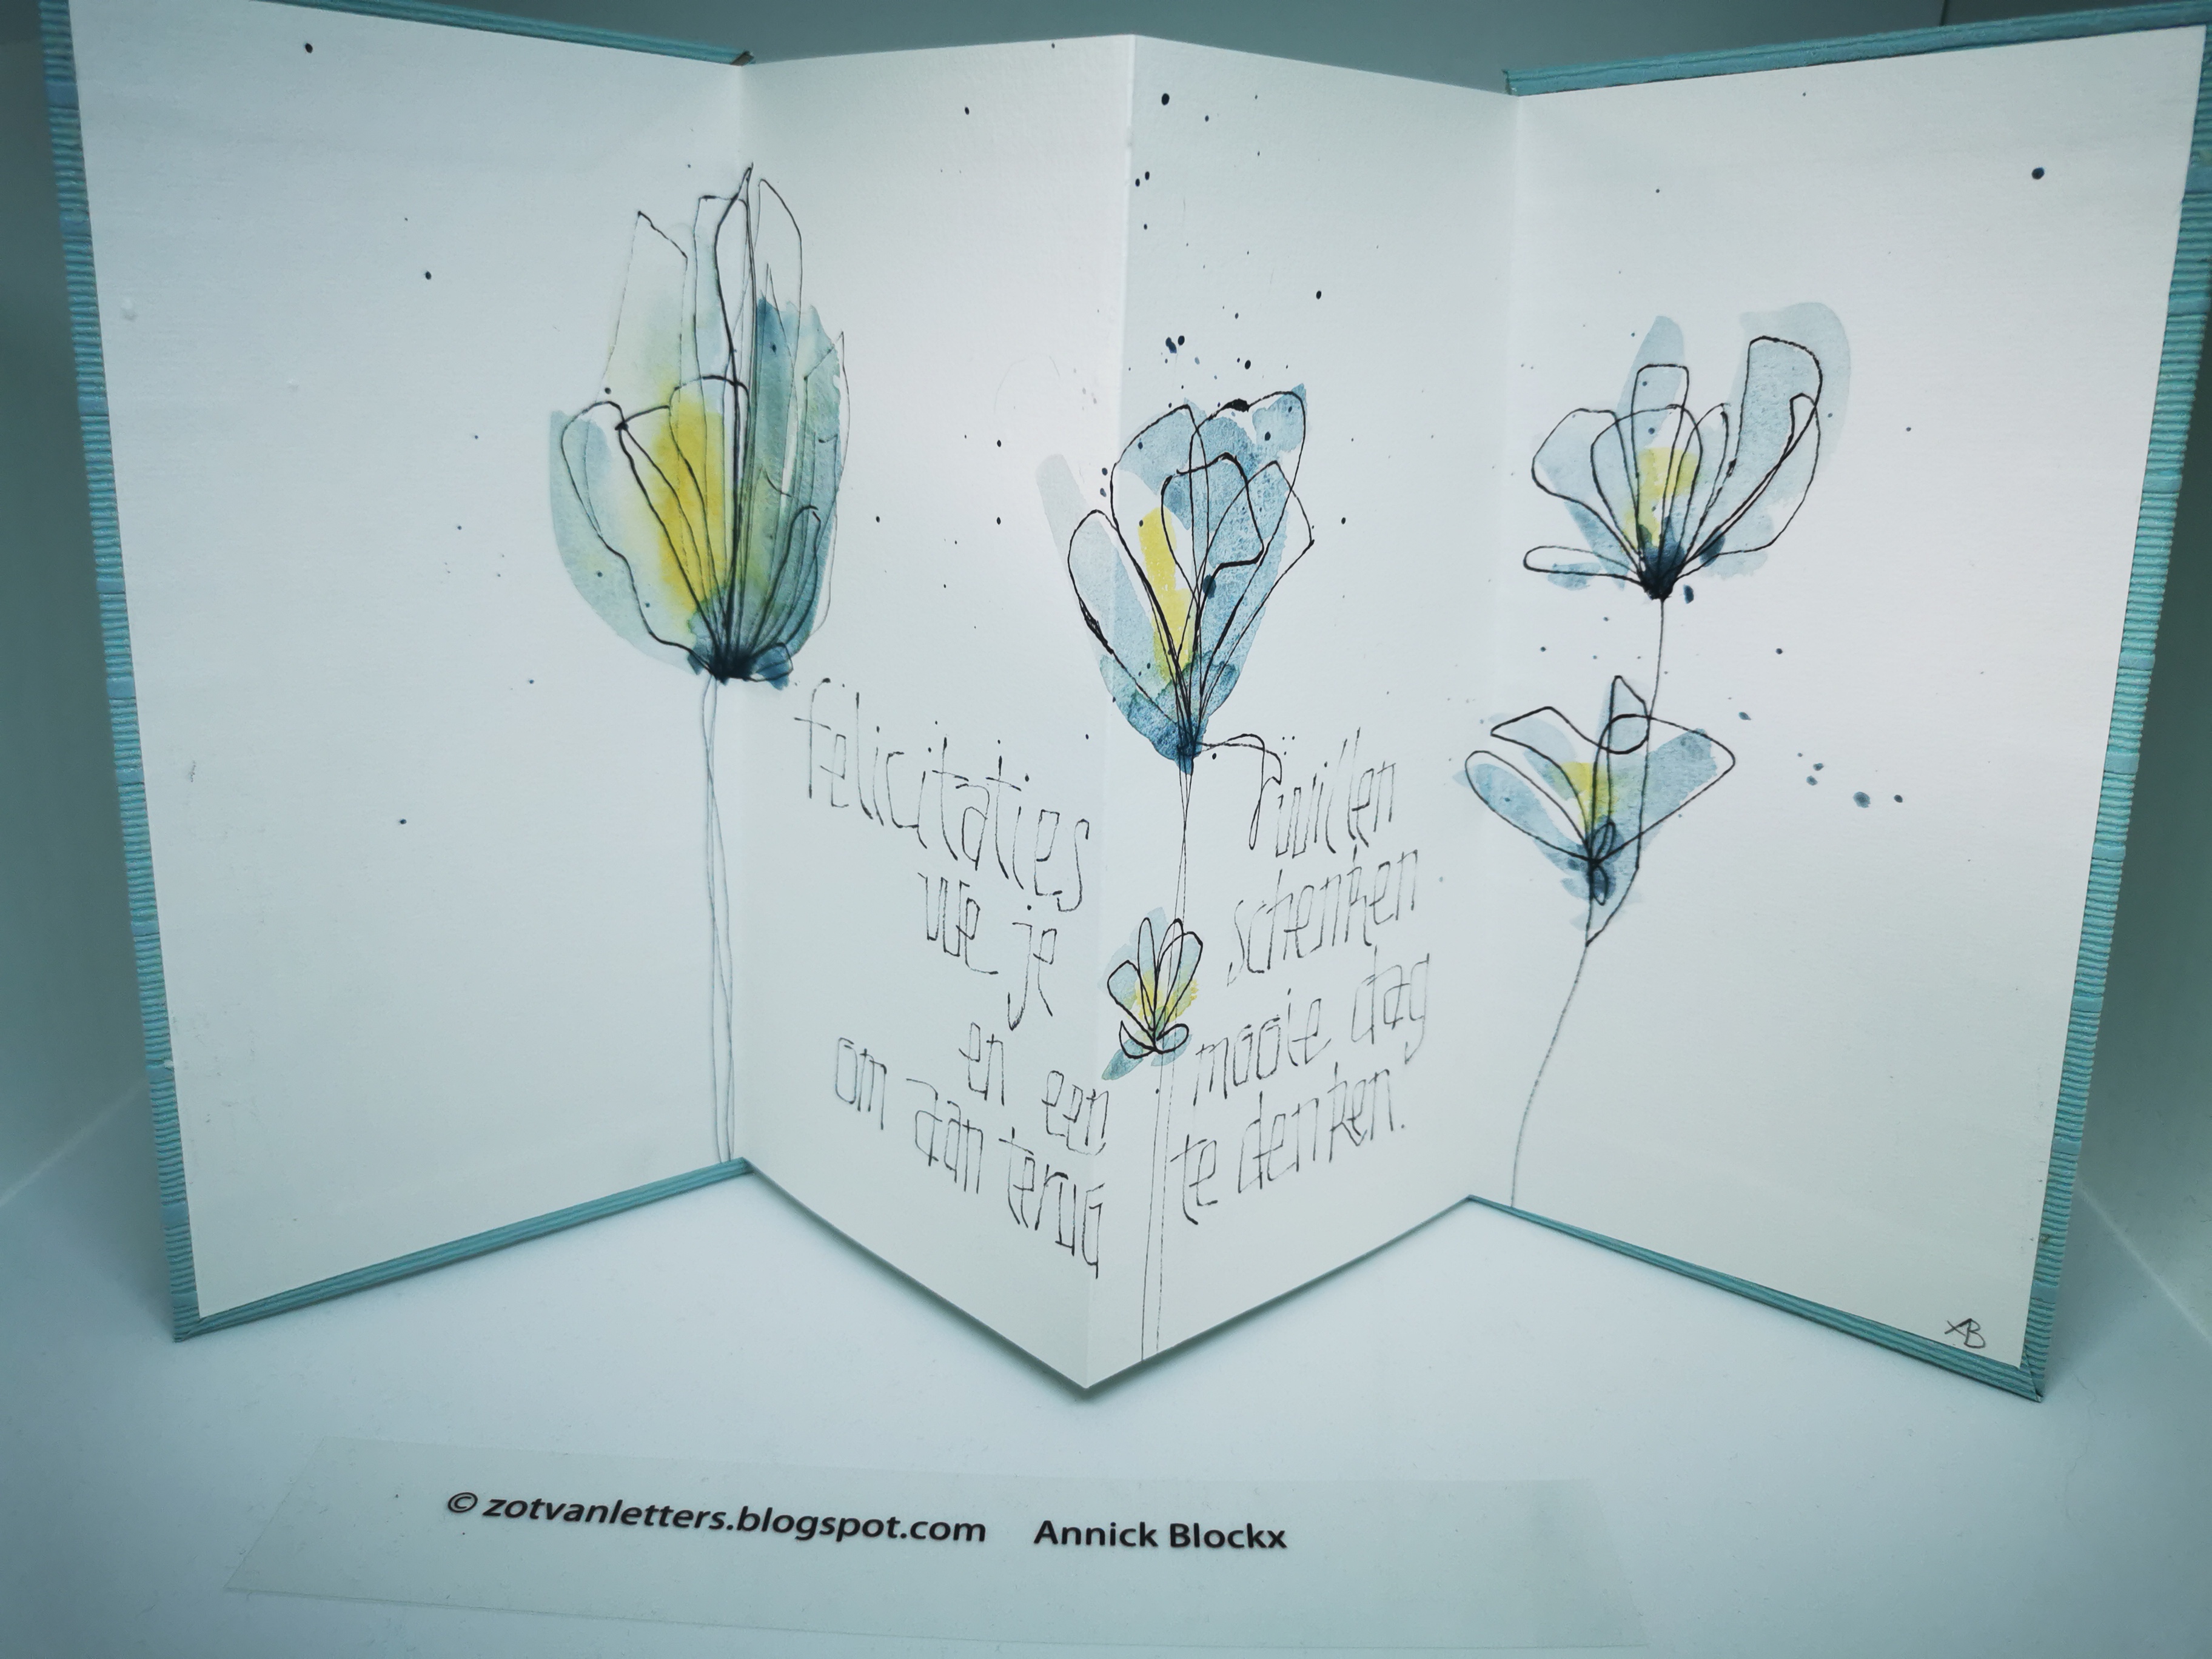 felicitaties
we je willen
schenken
en een mooie dag
om aan terug te denken.
AB
© zotvanletters.blogspot.com Annick Blockx